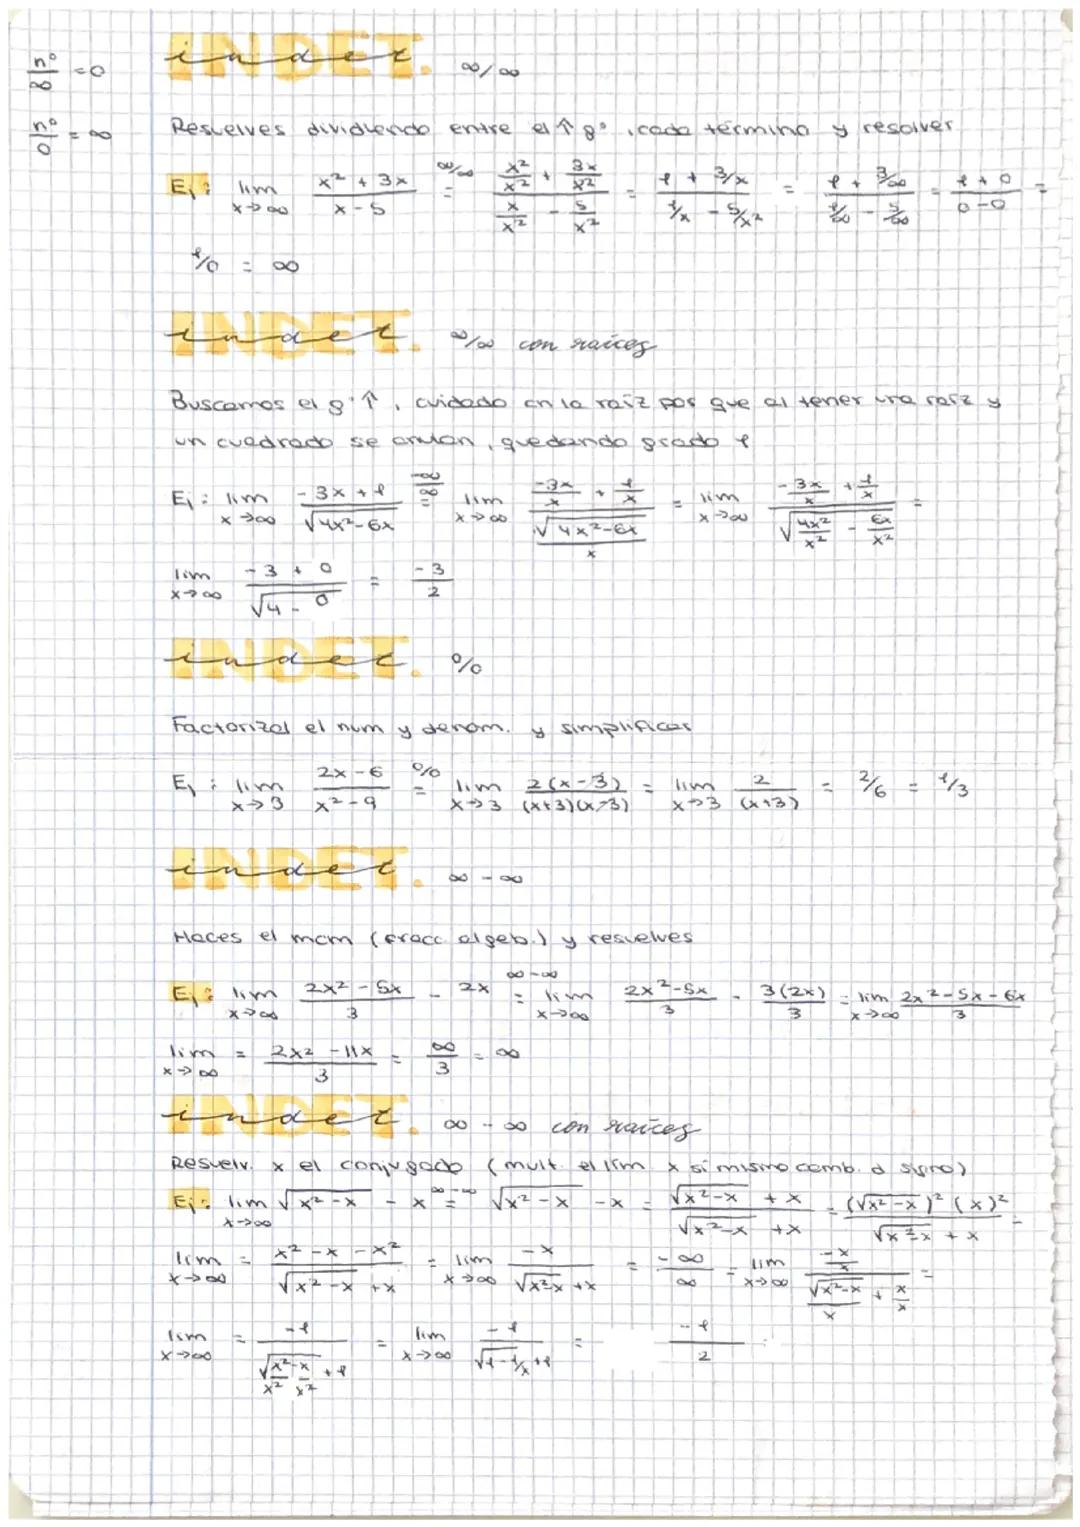 nº/∞ = 0
nº/0 = ∞
INDET. indet. ∞/∞
Resuelves dividiendo entre el ↑ gº, cada término y resolver
Ej: lim x→∞ (x² + 3x)/(x - 5) =^(∞/∞) (x²/x² + 3x/x²)/(x/x² - 5/x²) = (1 + 3/x)/(1/x - 5/x²) = (1 + 3/∞)/(1/∞ - 5/∞) = (1 + 0)/(0 - 0) =
1/0 = ∞
INDET. indet. ∞/∞ con raíces
Buscamos el gº↑, cuidado en la raíz por que al tener una raíz y
un cuadrado se anulan, quedando grado 1
Ej: lim x→∞ (-3x + 1)/√(4x²-6x) =^(-∞/∞) lim x→∞ (-3x/x + 1/x)/(√(4x²-6x)/x) = lim x→∞ (-3x/x + 1/x)/√(4x²/x² - 6x/x²) =
lim x→∞ (-3 + 0)/√(4 - 0) = -3/2
INDET. indet. 0/0
Factorizas el num y denom. y simplificas
Ej: lim x→3 (2x - 6)/(x² - 9) =^(0/0) lim x→3 2(x-3)/((x+3)(x-3)) = lim x→3 2/(x+3) = 2/6 = 1/3
INDET. indet. ∞ - ∞
Haces el mcm (fracc. algeb.) y resuelves
Ej: lim x→∞ (2x² - 5x)/3 - 2x =^(∞-∞) lim x→∞ (2x²-5x)/3 - 3(2x)/3 = lim x→∞ (2x²-5x-6x)/3
lim x→∞ = (2x² - 11x)/3 = ∞/3 = ∞
INDET. indet. ∞ - ∞ con raíces
Resuelv. x el conjugado (mult. el lím x si mismo camb. d signo)
Ej: lim x→∞ √(x² - x) - x =^(∞-∞) √(x² - x) - x = (√(x²-x) + x)/(√(x²-x) + x) = ((√(x²-x))² (x)²)/(√(x²-x) + x) =
lim x→∞ = (x² - x - x²)/(√(x²-x) + x) = lim x→∞ -x/(√(x²-x) + x) = -∞/∞ = lim x→∞ (-x/x)/(√(x²-x)/x + x/x) =
lim x→∞ = -1/(√(x²/x² - x/x²) + 1) = lim x→∞ -1/(√(1-1/x) + 1) = -1/2